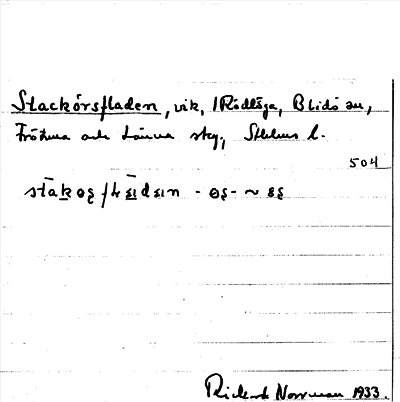 Stackörsfladen, vik, i Rödlöga, Blidö sn,
Frötuna och Länna skg., Sthlms l.
504
Rickard Norrman 1933.